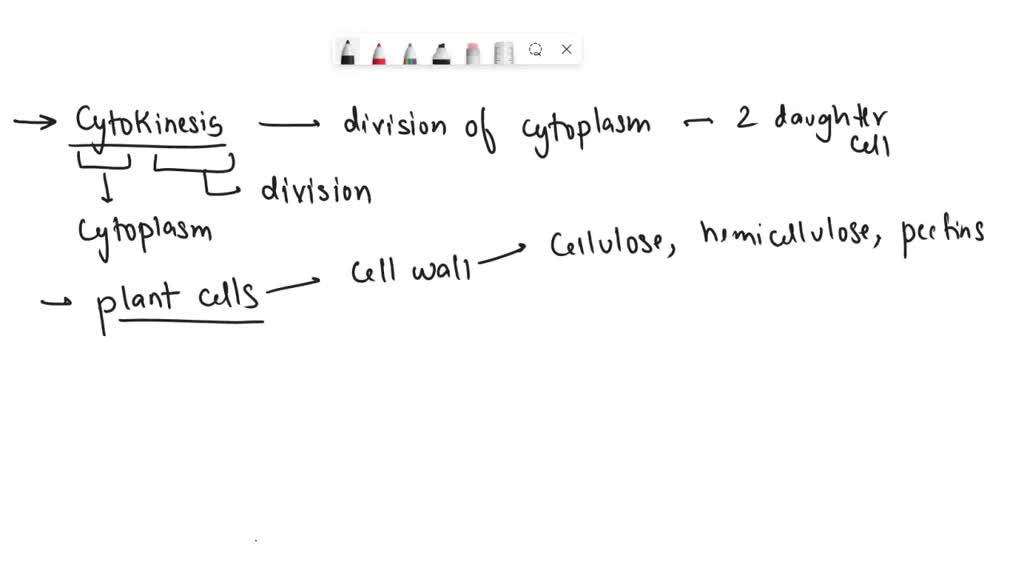 → Cytokinesis — division of cytoplasm – 2 daughter cell
division
Cytoplasm
→ plant cells → cell wall → cellulose, hemicellulose, pectins